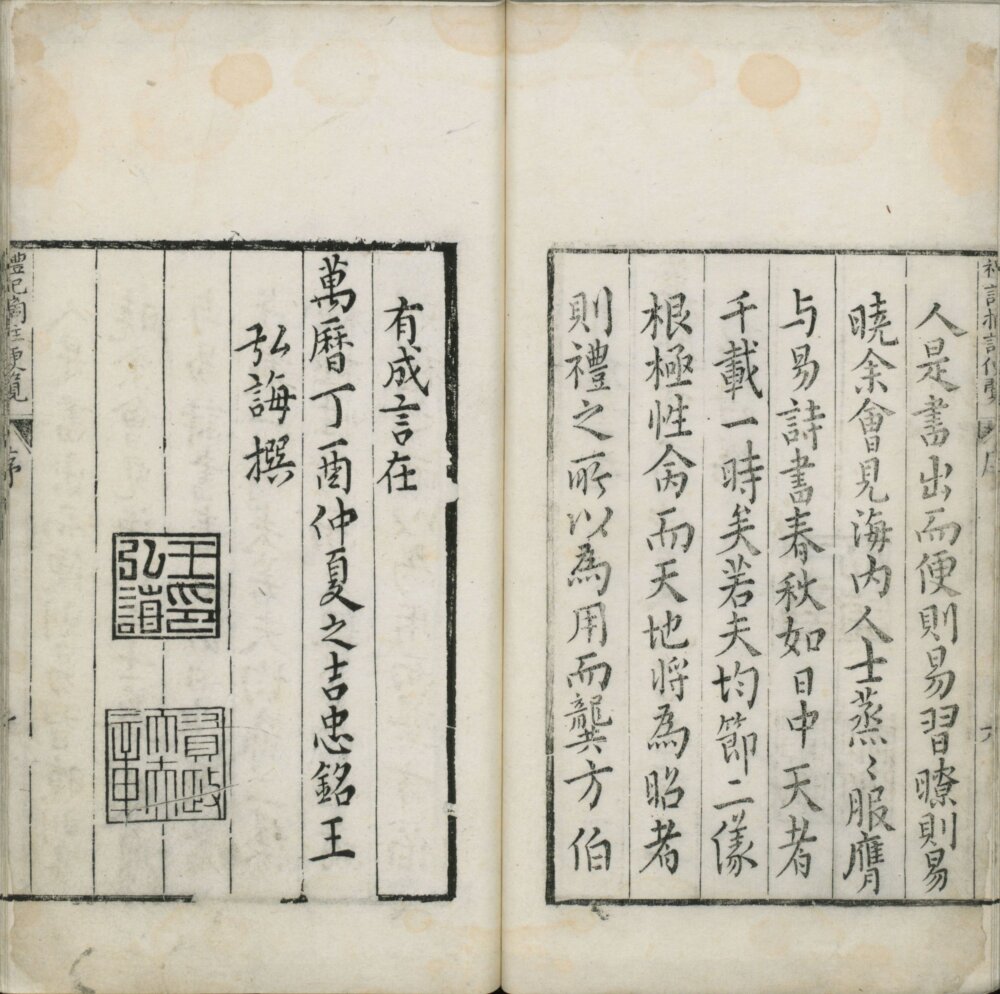 人是書出而便則易習瞭則易
曉余會見海內人士蒸〻服膺
与易詩書春秋如日中天者
千載一時矣若夫均節二儀
根極性命而天地將為昭者
則禮之所以為用而龔方伯
有成言在
萬曆丁酉仲夏之吉忠銘王
弘誨撰
王印弘誨
禮記摘註便覽
序
六